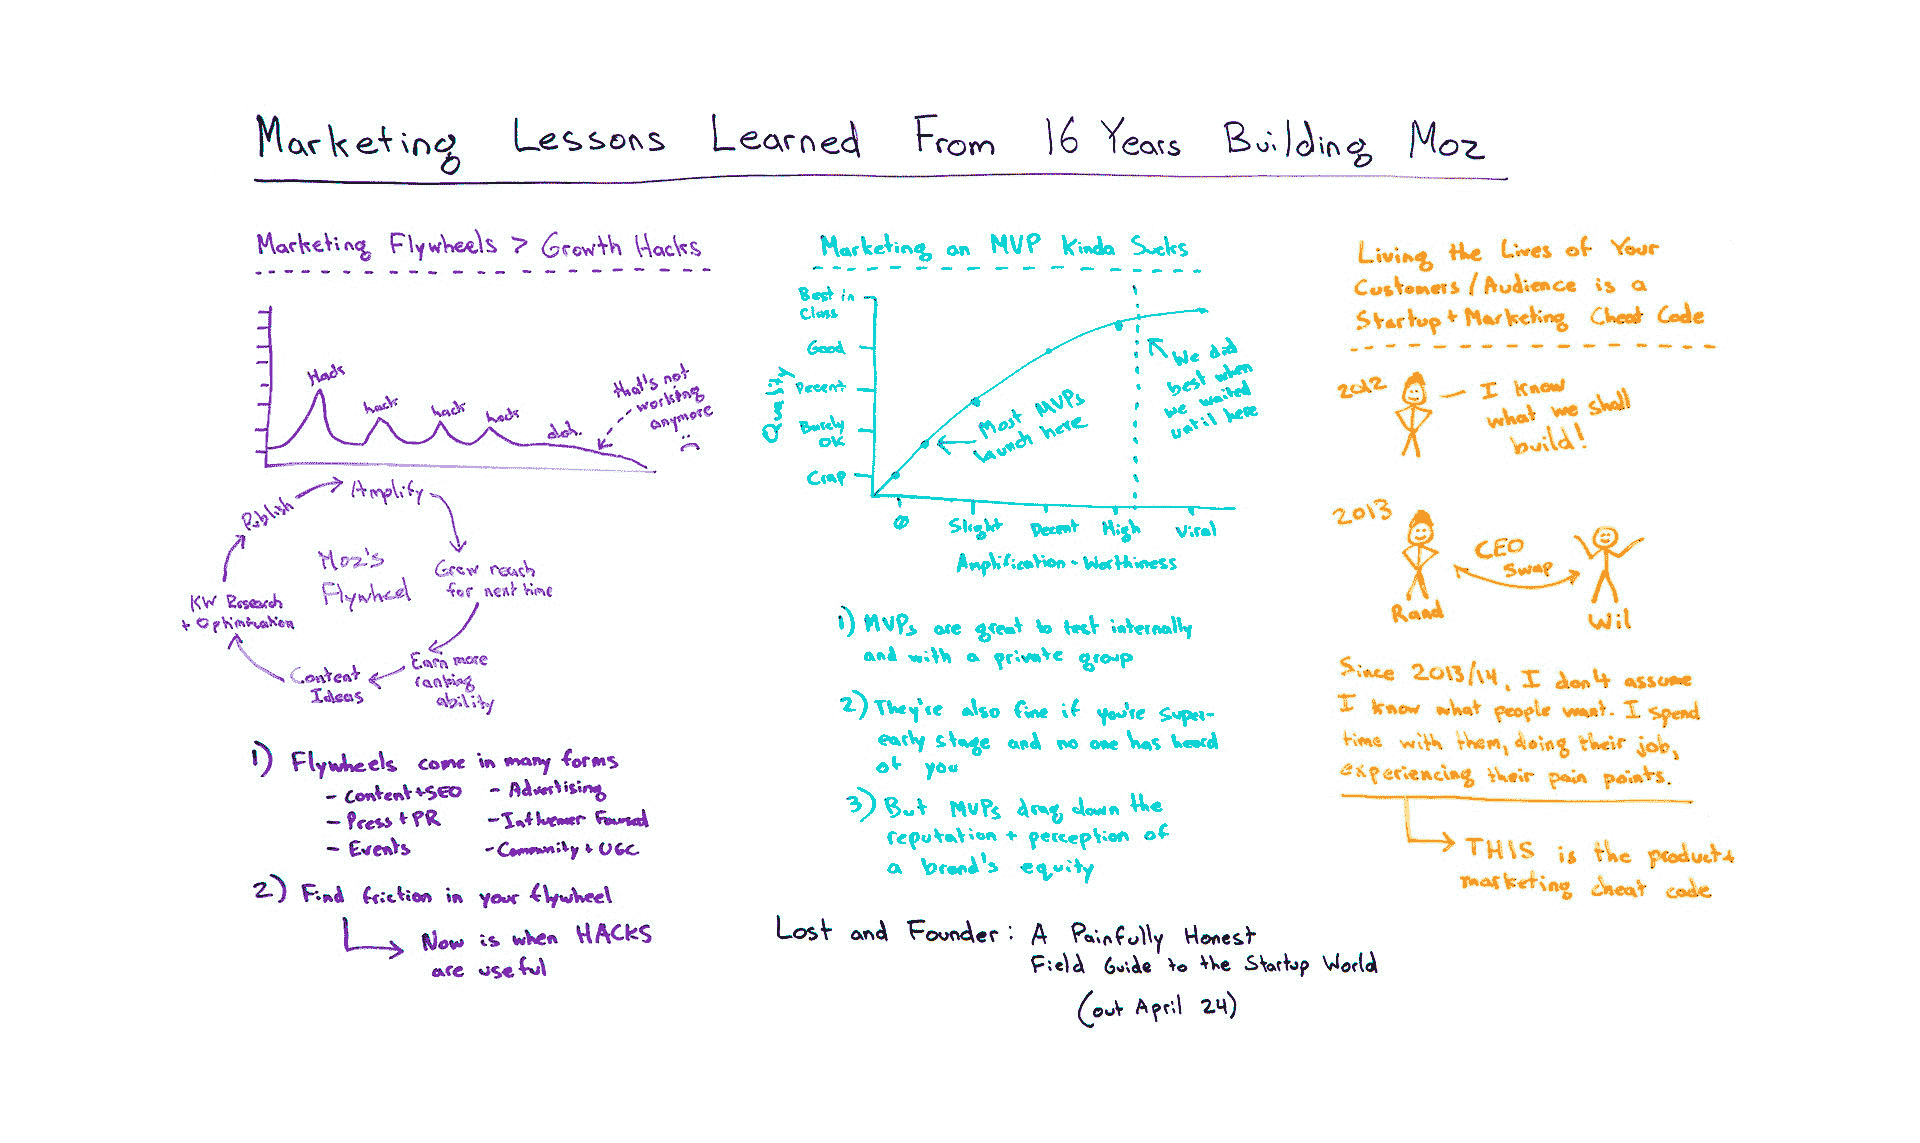 Marketing Lessons Learned From 16 Years Building Moz
Marketing Flywheels > Growth Hacks
Hack
hack
hack
hack
doh.
that's not
working
anymore
:(
Moz's
Flywheel
Publish
Amplify
Grow reach
for next time
Earn more
ranking
ability
Content
Ideas
KW Research
+ Optimization
1) Flywheels come in many forms
- Content+SEO - Advertising
- Press+PR - Influencer Focused
- Events - Community + UGC
2) Find friction in your flywheel
Now is when HACKS
are useful
Marketing an MVP Kinda Sucks
Quality
Best in
Class
Good
Decent
Barely
OK
Crap
Most MVPs
launch here
We did
best when
we waited
until here
Ø Slight Decent High Viral
Amplification-Worthiness
1) MVPs are great to test internally
and with a private group
2) They're also fine if you're super-
early stage and no one has heard
of you
3) But MVPs drag down the
reputation + perception of
a brand's equity
Lost and Founder: A Painfully Honest
Field Guide to the Startup World
(out April 24)
Living the Lives of Your
Customers/Audience is a
Startup+Marketing Cheat Code
2012
I know
what we shall
build!
2013
CEO
Swap
Rand
Wil
Since 2013/14, I don't assume
I know what people want. I spend
time with them, doing their job,
experiencing their pain points.
THIS is the product+
marketing cheat code